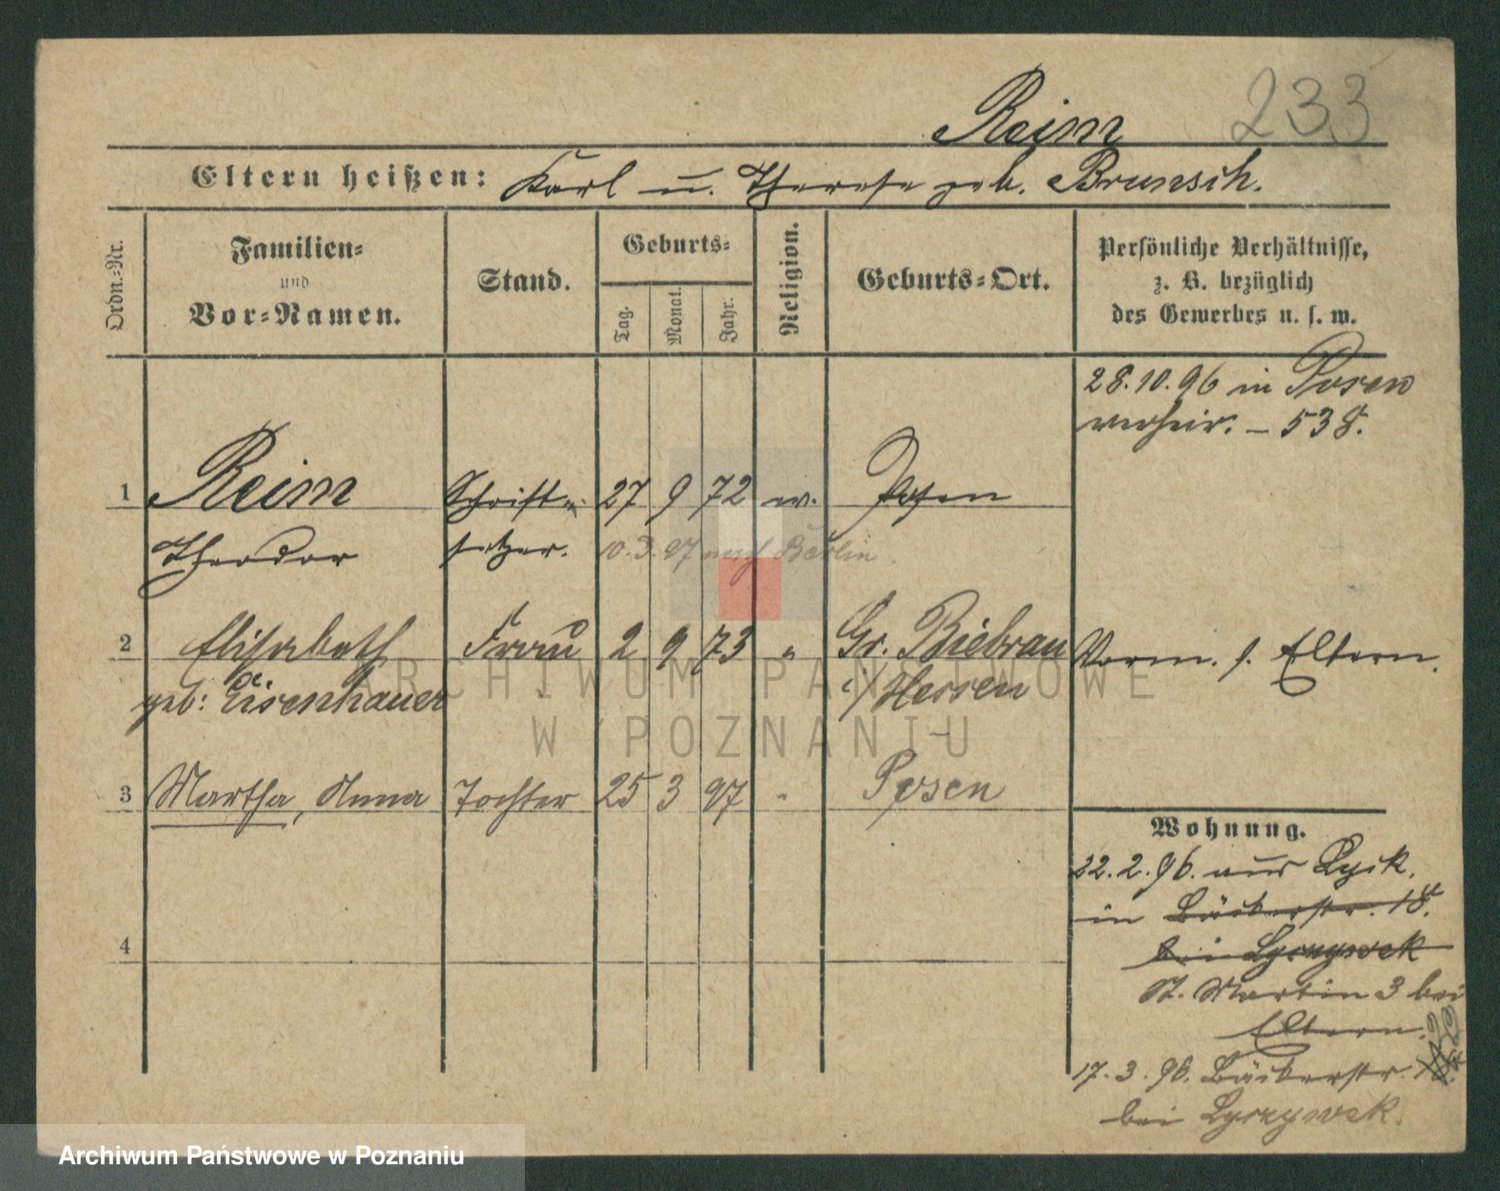 Reim 233
Eltern heißen: Karl u. Therese geb. Brunsch.
Ordn.-Nr.
Familien-
und
Vor-Namen.
Stand.
Geburts-
Tag.
Monat.
Jahr.
Religion.
Geburts-Ort.
Persönliche Verhältnisse,
z. B. bezüglich
des Gewerbes u. s. w.
28.10.96 in Posen
verheir. – 538.
1 Reim Schrift- 27 9 72 ev. Posen
Theodor setzer. 10.3.97 nach Berlin.
2 Elisabeth Frau 2 9 73 " Gr. Biebrau Vorm. s. Eltern.
geb: Eisenhauer i/Hessen
3 Martha, Anna Tochter 25 3 97 " Posen
4
Wohnung.
22.2.96. aus Lyck.
in Bäckerstr. 18.
bei Lyczywek
St. Martin 3 bei
Eltern.
17.3.96. Bäckerstr.
bei Lyczywek.
ARCHIWUM PAŃSTWOWE
W POZNANIU
Archiwum Państwowe w Poznaniu